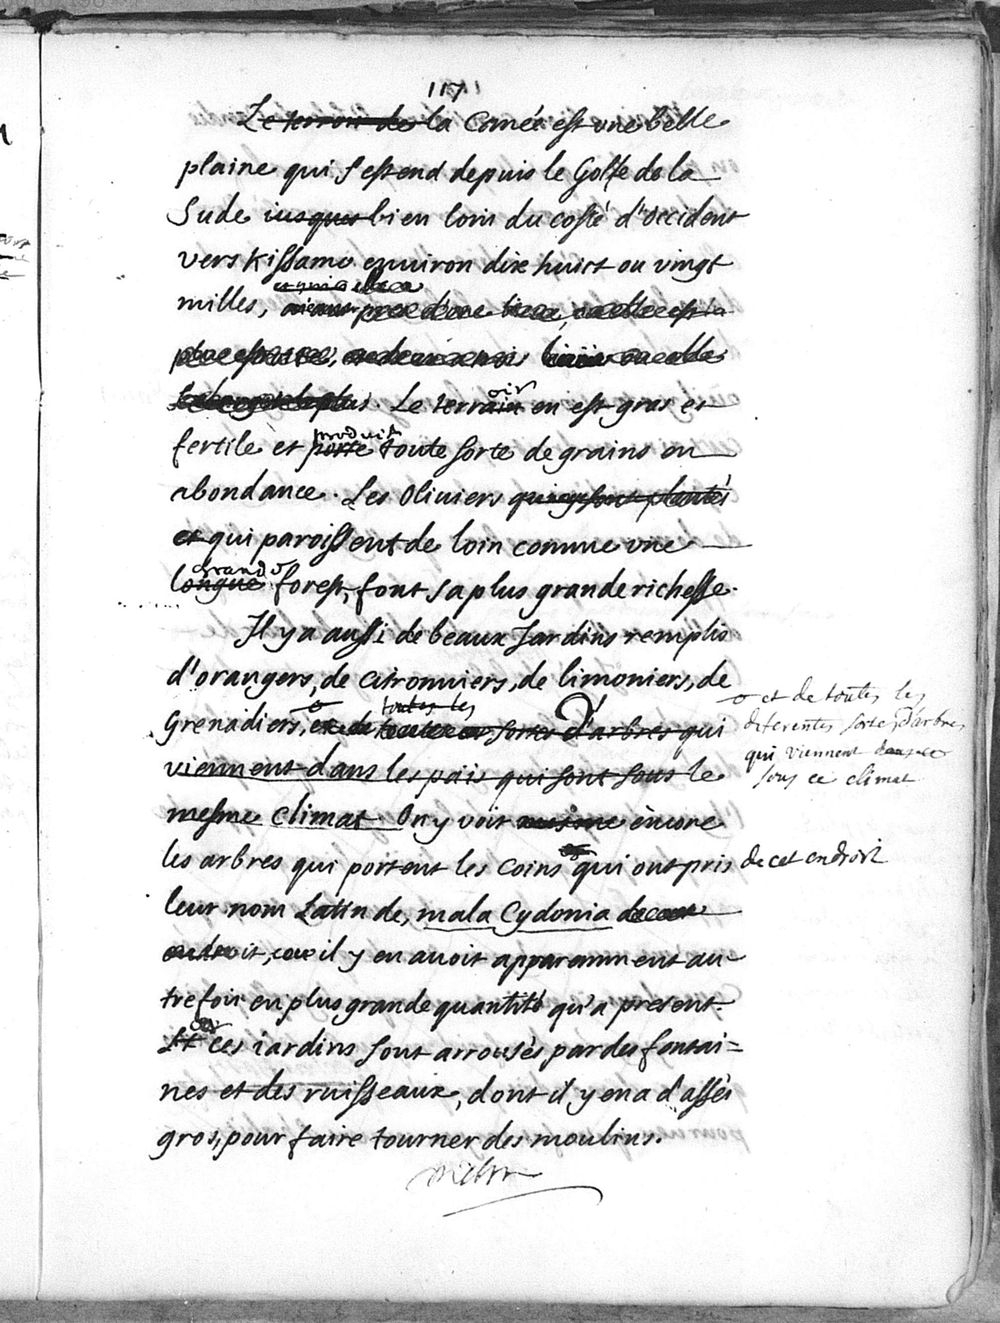 117
Le terroir de la Canée est une belle
plaine qui s'estend depuis le Golfe de la
Sude iusques bien loin du costé d'Occident
vers Kissamo environ dix huict ou vingt
milles,
Le terrain oir en est gras et
fertile et porte produit toute sorte de grains en
abondance. Les Oliviers qui y sont plantés
et qui paroissent de loin comme une
longue grande forest, font sa plus grande richesse.
Il y a aussi de beaux Jardins remplis
d'orangers, de citronniers, de limoniers, de
Grenadiers, et de toutes les sortes d'arbres qui
viennent dans les païs qui sont sous le
mesme climat. On y voit mesme encore
les arbres qui portent les Coins qui ont pris
leur nom Latin de, mala Cydonia de cet
endroit, il y en avoit apparemment au-
trefois en plus grande quantité qu'a present.
Et ces iardins sont arrousés par des fontai=
nes et des ruisseaux, dont il y en a d'assés
gros, pour faire tourner des moulins.
et de toutes les
diferentes sortes d'arbres
qui viennent
sous ce climat
de cet endroit